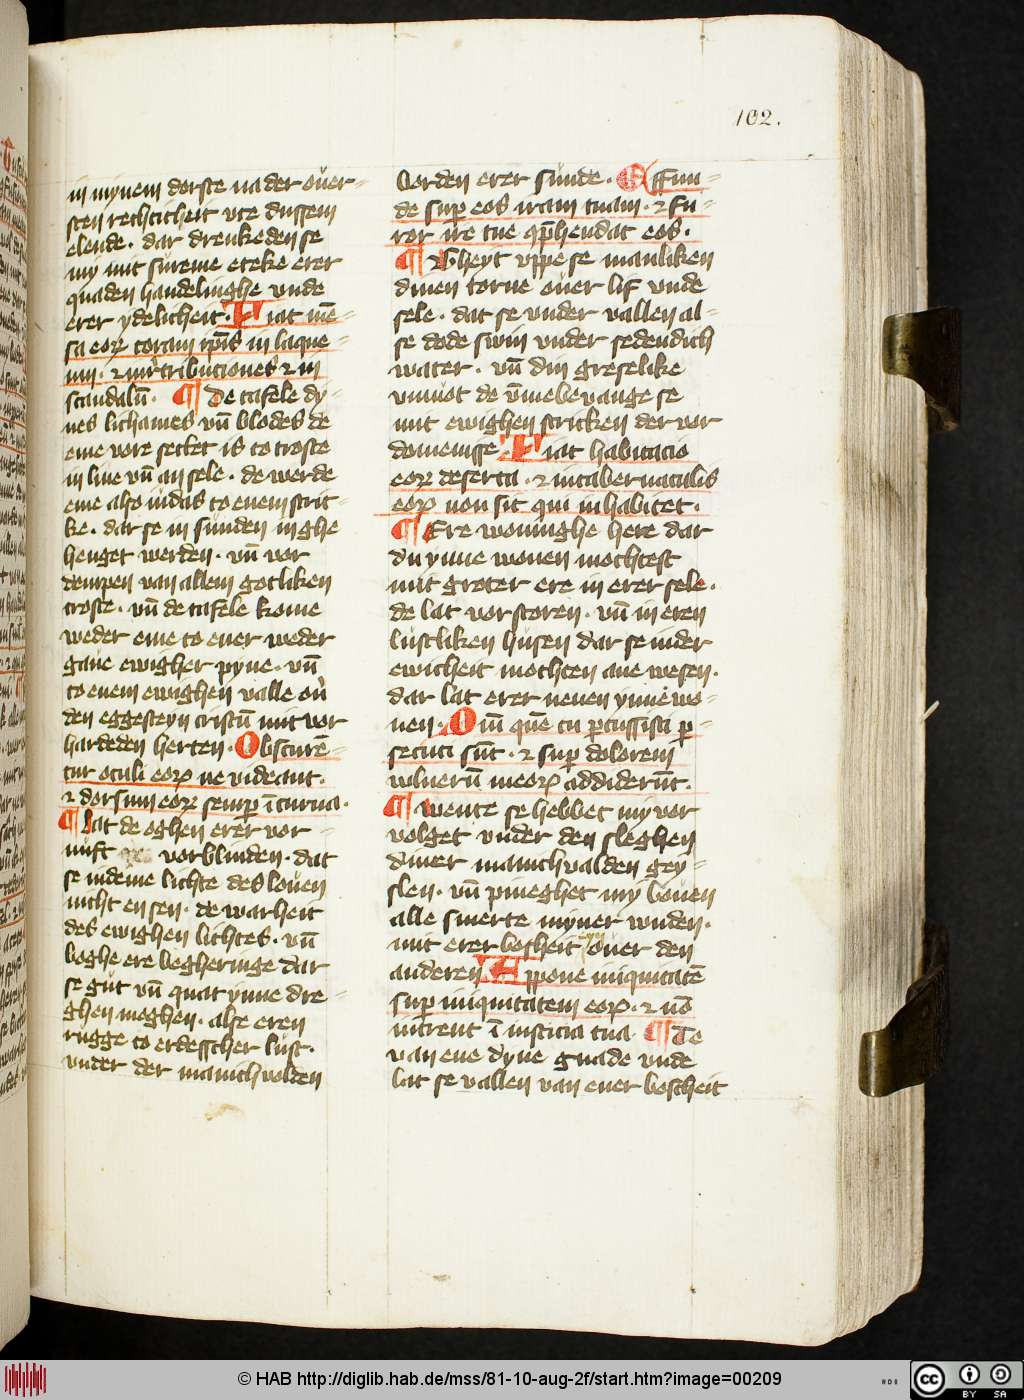 102.
in mynem dorste na der ouer-
sten rechticheit vte dussem
elende. dar drenkeden se
my mit sureme eteke erer
quaden handelinghe vnde
erer ydelicheit. Fiat mē-
sa eoꝝ coram ipīs in laque-
um. ⁊ in rt̄ributiones ⁊ in
scandalū. ¶ De tafele dy-
nes lichames vn̄ blodes de
eme vore secket is to troste
in liue vn̄ an sele. de werde
eme also iudas to enem stric-
ke. dar se in sunden in ghe
henget werden. vn̄ vor
dempen van allem gotliken
troste. vn̄ de tafele kome
weder eme to ener weder
gaue ewigher pyne. vn̄
to enem ewighen valle ou̅
den eggesteyn cristū mit vor
hardeden herten. Obscurē-
tur oculi eoꝝ ne videant.
⁊ dorsum eoꝝ semp̄ ī curua.
¶ Lat de oghen erer vor-
nuft vorblinden. dat
se in deme lichte des louen
nicht en sen. de warheit
des ewighen lichtes. vn̄
boghe ere begheringe dar
se gut vn̄ quat ynne dre-
ghen moghen. alse eren
rugge to erdesscher lust.
vnder der manichuolden
borden erer sunde. Effun-
de sup̄ eos iram tuam. ⁊ fu-
ror ire tue ꝯp̄hendat eos.
¶ Gheyt vppe se manliken
dinen torne ouer lif vnde
sele. dat se vnder vallen al-
se dode swin vnder sedendich
water. vn̄ din greselike
vnmot de vmmebevange se
mit ewighen stricken der vor
domenisse. Fiat habitacio
eoꝝ deserta. ⁊ in tabernaculis
eoꝝ non sit qui inhabitet.
¶ Ere woninghe here dar
du ynne wonen mochtest
mit groter ere in erer sele.
de lat vorstoren. vn̄ in eren
lustliken husen dar se in der
ewicheit mochten ane wesen.
dar lat erer nenen ynne wo-
nen. Qm̄ quē tu ꝑcussisti ꝑ-
secuti sūt. ⁊ sup̄ dolorem
vulnerū meoꝝ addiderūt.
¶ Wente se hebbet my vor
volget vnder den sleghen
diner manichualden gey-
slen. vn̄ pineghet my bouen
alle smerte myner wnden.
mit erer bosheit ouer den
anderen. Appone iniquitatē
sup̄ iniquitatem eoꝝ. ⁊ nō
intrent ī iusticia tua. ¶ De
van ene dyne gnade vnde
lat se vallen van ener boscheit
© HAB http://diglib.hab.de/mss/81-10-aug-2f/start.htm?image=00209
HAB
CC BY SA